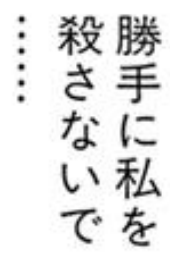 勝手に私を
殺さないで
……